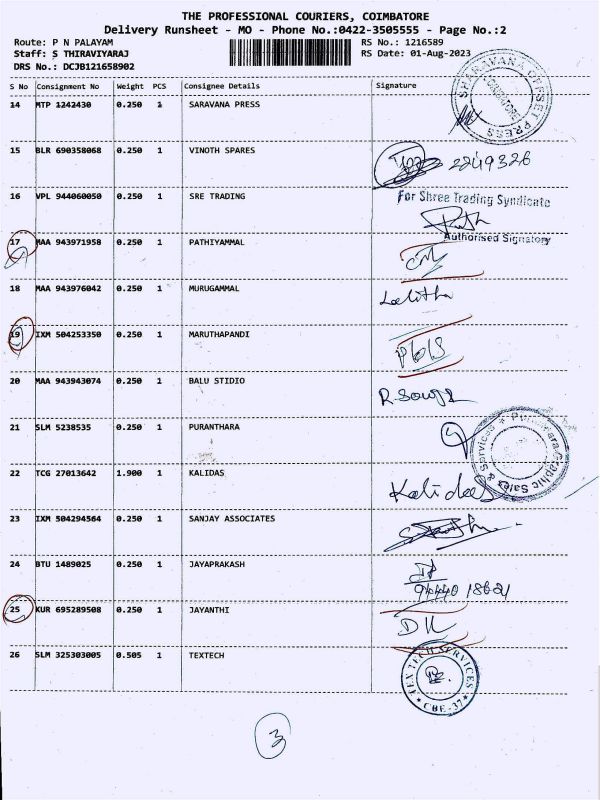 THE PROFESSIONAL COURIERS, COIMBATORE
Delivery Runsheet - MO - Phone No.:0422-3505555 - Page No.:2
Route: P N PALAYAM RS No.: 1216589
Staff: S THIRAVIYARAJ RS Date: 01-Aug-2023
DRS No.: DCJB121658902
S No Consignment No Weight PCS Consignee Details Signature
14 MTP 1242430 0.250 1 SARAVANA PRESS
SHARAVANA OFFSET PRESS
COIMBATORE
15 BLR 690358068 0.250 1 VINOTH SPARES 2249326
16 VPL 944060050 0.250 1 SRE TRADING For Shree Trading Syndicate
Authorised Signatory
17 MAA 943971958 0.250 1 PATHIYAMMAL
18 MAA 943976042 0.250 1 MURUGAMMAL Lalitha
19 IXM 504253350 0.250 1 MARUTHAPANDI
20 MAA 943943074 0.250 1 BALU STIDIO
21 SLM 5238535 0.250 1 PURANTHARA
Graphic Sales & Services
22 TCG 27013642 1.900 1 KALIDAS Kalidas
23 IXM 504294564 0.250 1 SANJAY ASSOCIATES
24 BTU 1489025 0.250 1 JAYAPRAKASH
25 KUR 695289508 0.250 1 JAYANTHI
26 SLM 325303005 0.505 1 TEXTECH
TEX TECH SERVICES
CBE-37
3